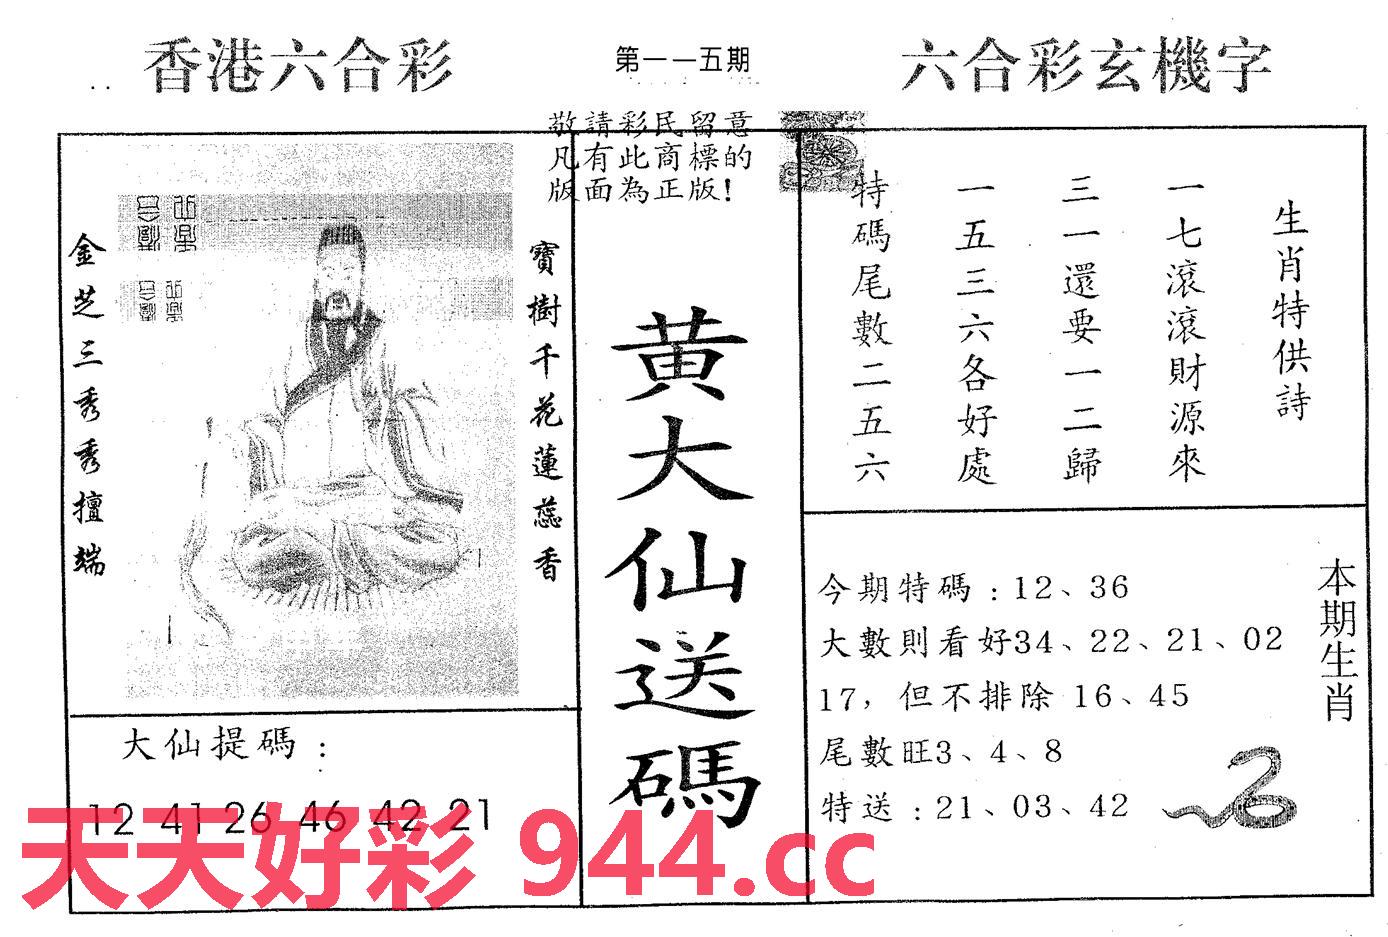 香港六合彩
第一一五期
六合彩玄機字
敬請彩民留意
凡有此商標的
版面為正版!
寶樹千花蓮蕊香
金芝三秀秀擅端
黄大仙送碼
生肖特供詩
一七滾滾財源來
三一還要一二歸
一五三六各好處
特碼尾數二五六
大仙提碼:
12 41 26 46 42 21
本期生肖
今期特碼:12、36
大數則看好34、22、21、02
17，但不排除 16、45
尾數旺3、4、8
特送:21、03、42
天天好彩 944.cc